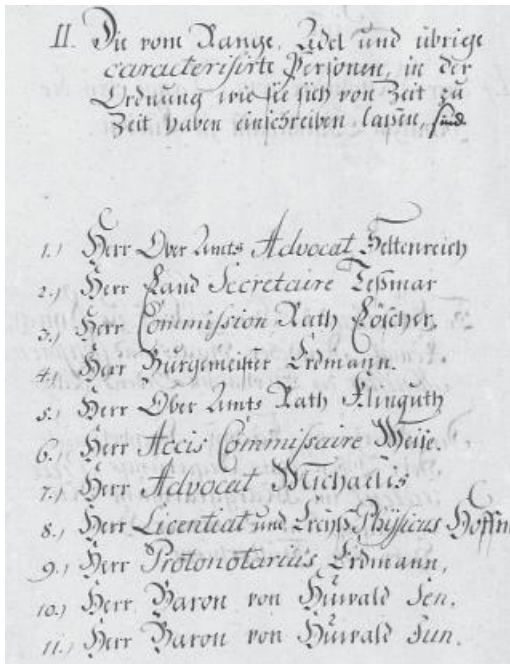 II. Die vom Range, Adel und übrige
caracterisirte Personen, in der
Ordnung wie sie sich von Zeit zu
Zeit haben einschreiben laßen, sind
1.) Herr Ober Amts Advocat Seltenreich
2.) Herr Land Secretaire Teßmar
3.) Herr Commission Rath Löscher,
4.) Herr Bürgemeister Erdmann.
5.) Herr Ober Amts Rath Klinguth
6.) Herr Accis Commissaire Weise.
7.) Herr Advocat Michaelis
8.) Herr Licentiat und Creyß Physicus Hoffm
9.) Herr Protonotarius Erdmann,
10.) Herr Baron von Hüwald Sen.
11.) Herr Baron von Hüwald Jun.